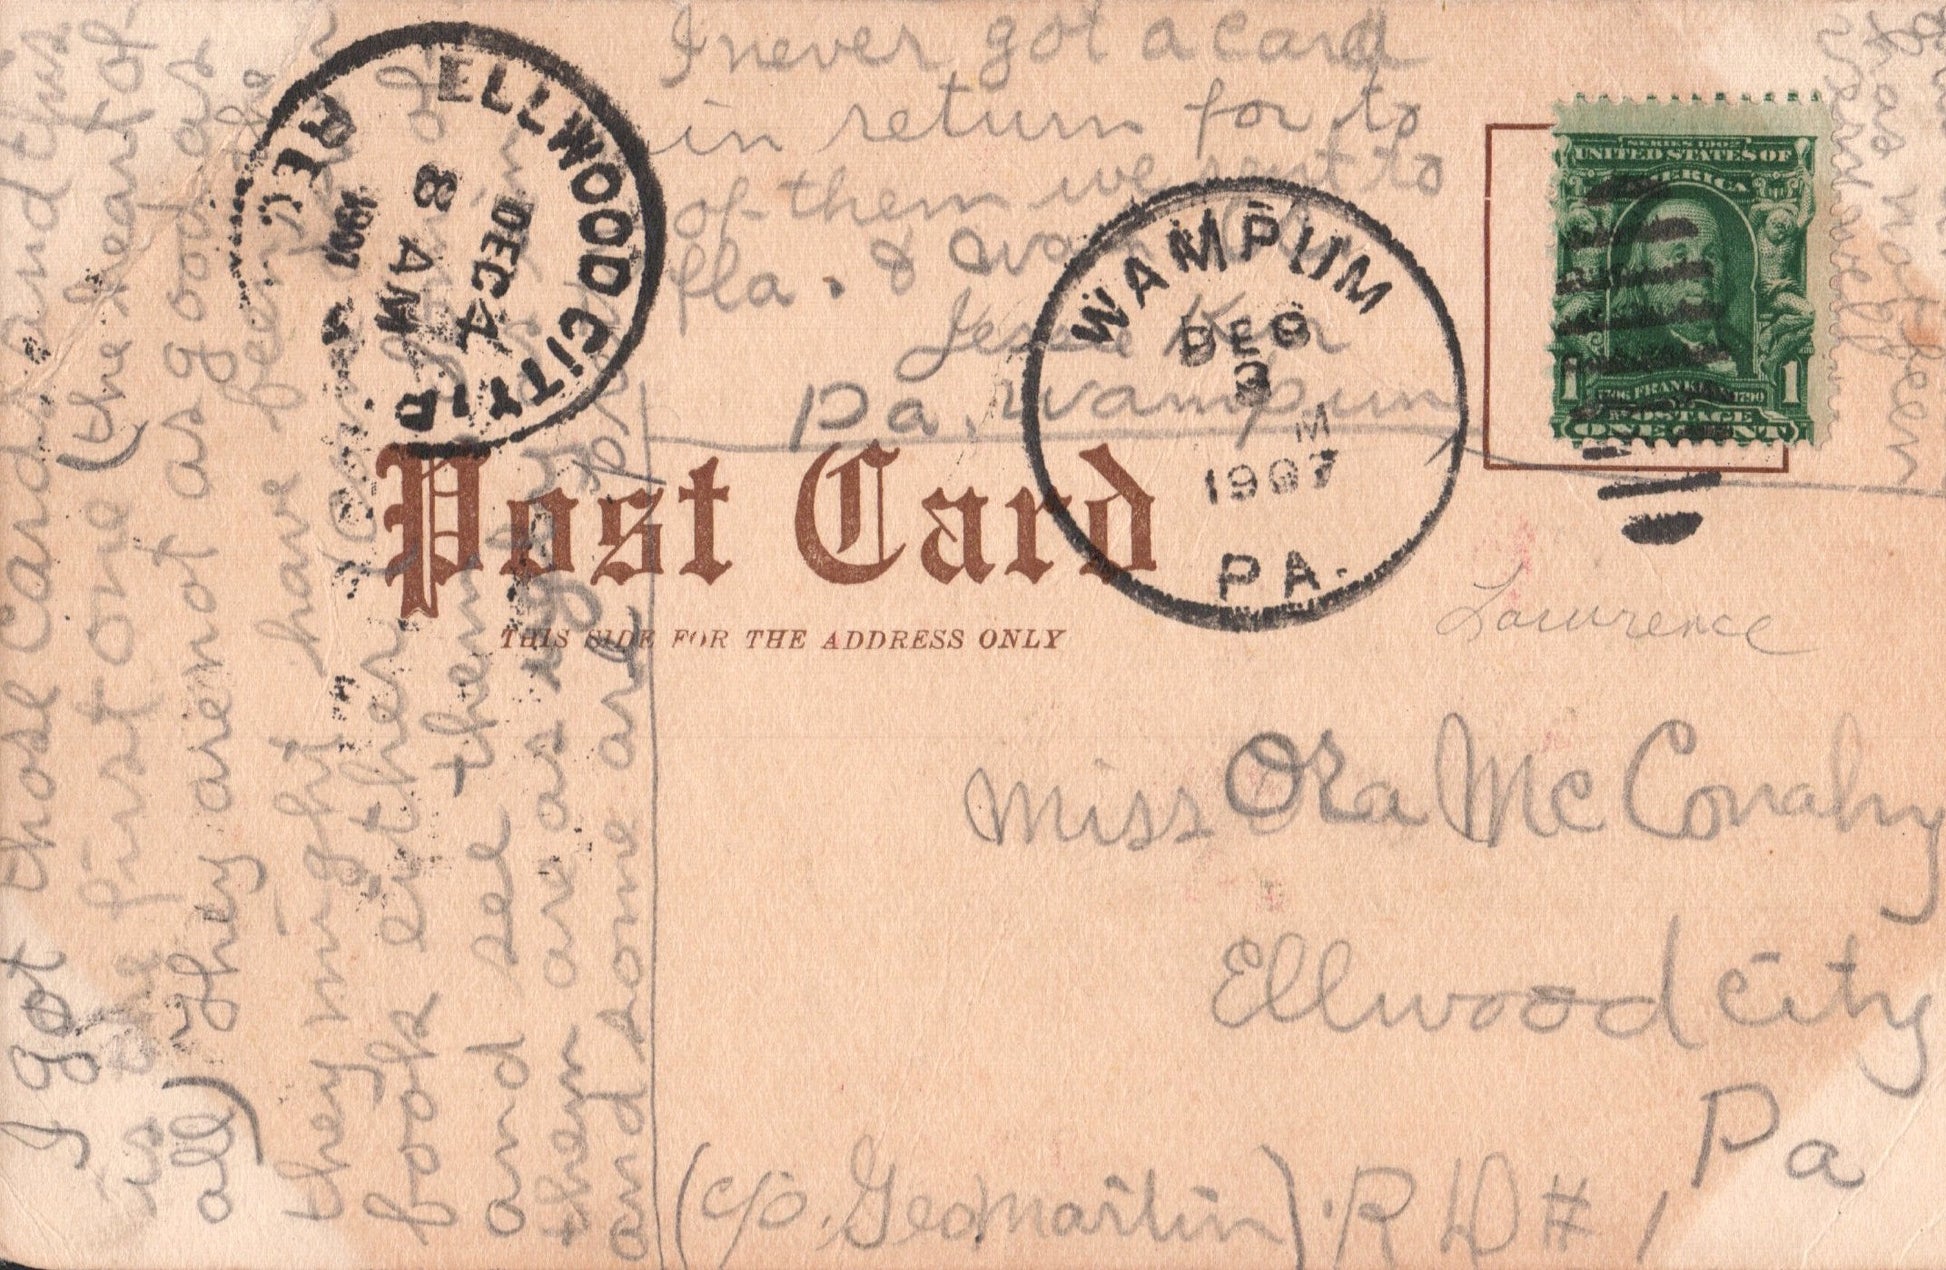 I got those cards and this
is the first one (the heart of
all) They are not as good as
they might have been
look either
and see them
them are as ugly
and some are
I never got a card
in return for to
of them we sent to
fla. &
Jessie Ker
Pa. Wampum
has not been
very well
ELLWOOD CITY, P
DEC 4
8 AM
1907
REC'
WAMPUM
DEC
3
M
1907
PA.
SERIES 1902
UNITED STATES OF
AMERICA
1 1
1706 FRANKLIN 1790
POSTAGE
ONE CENT
Post Card
THIS SIDE FOR THE ADDRESS ONLY
Lawrence
Miss Ora McConahy
Ellwood City
Pa
(c/o. Geo Martin). R D # 1